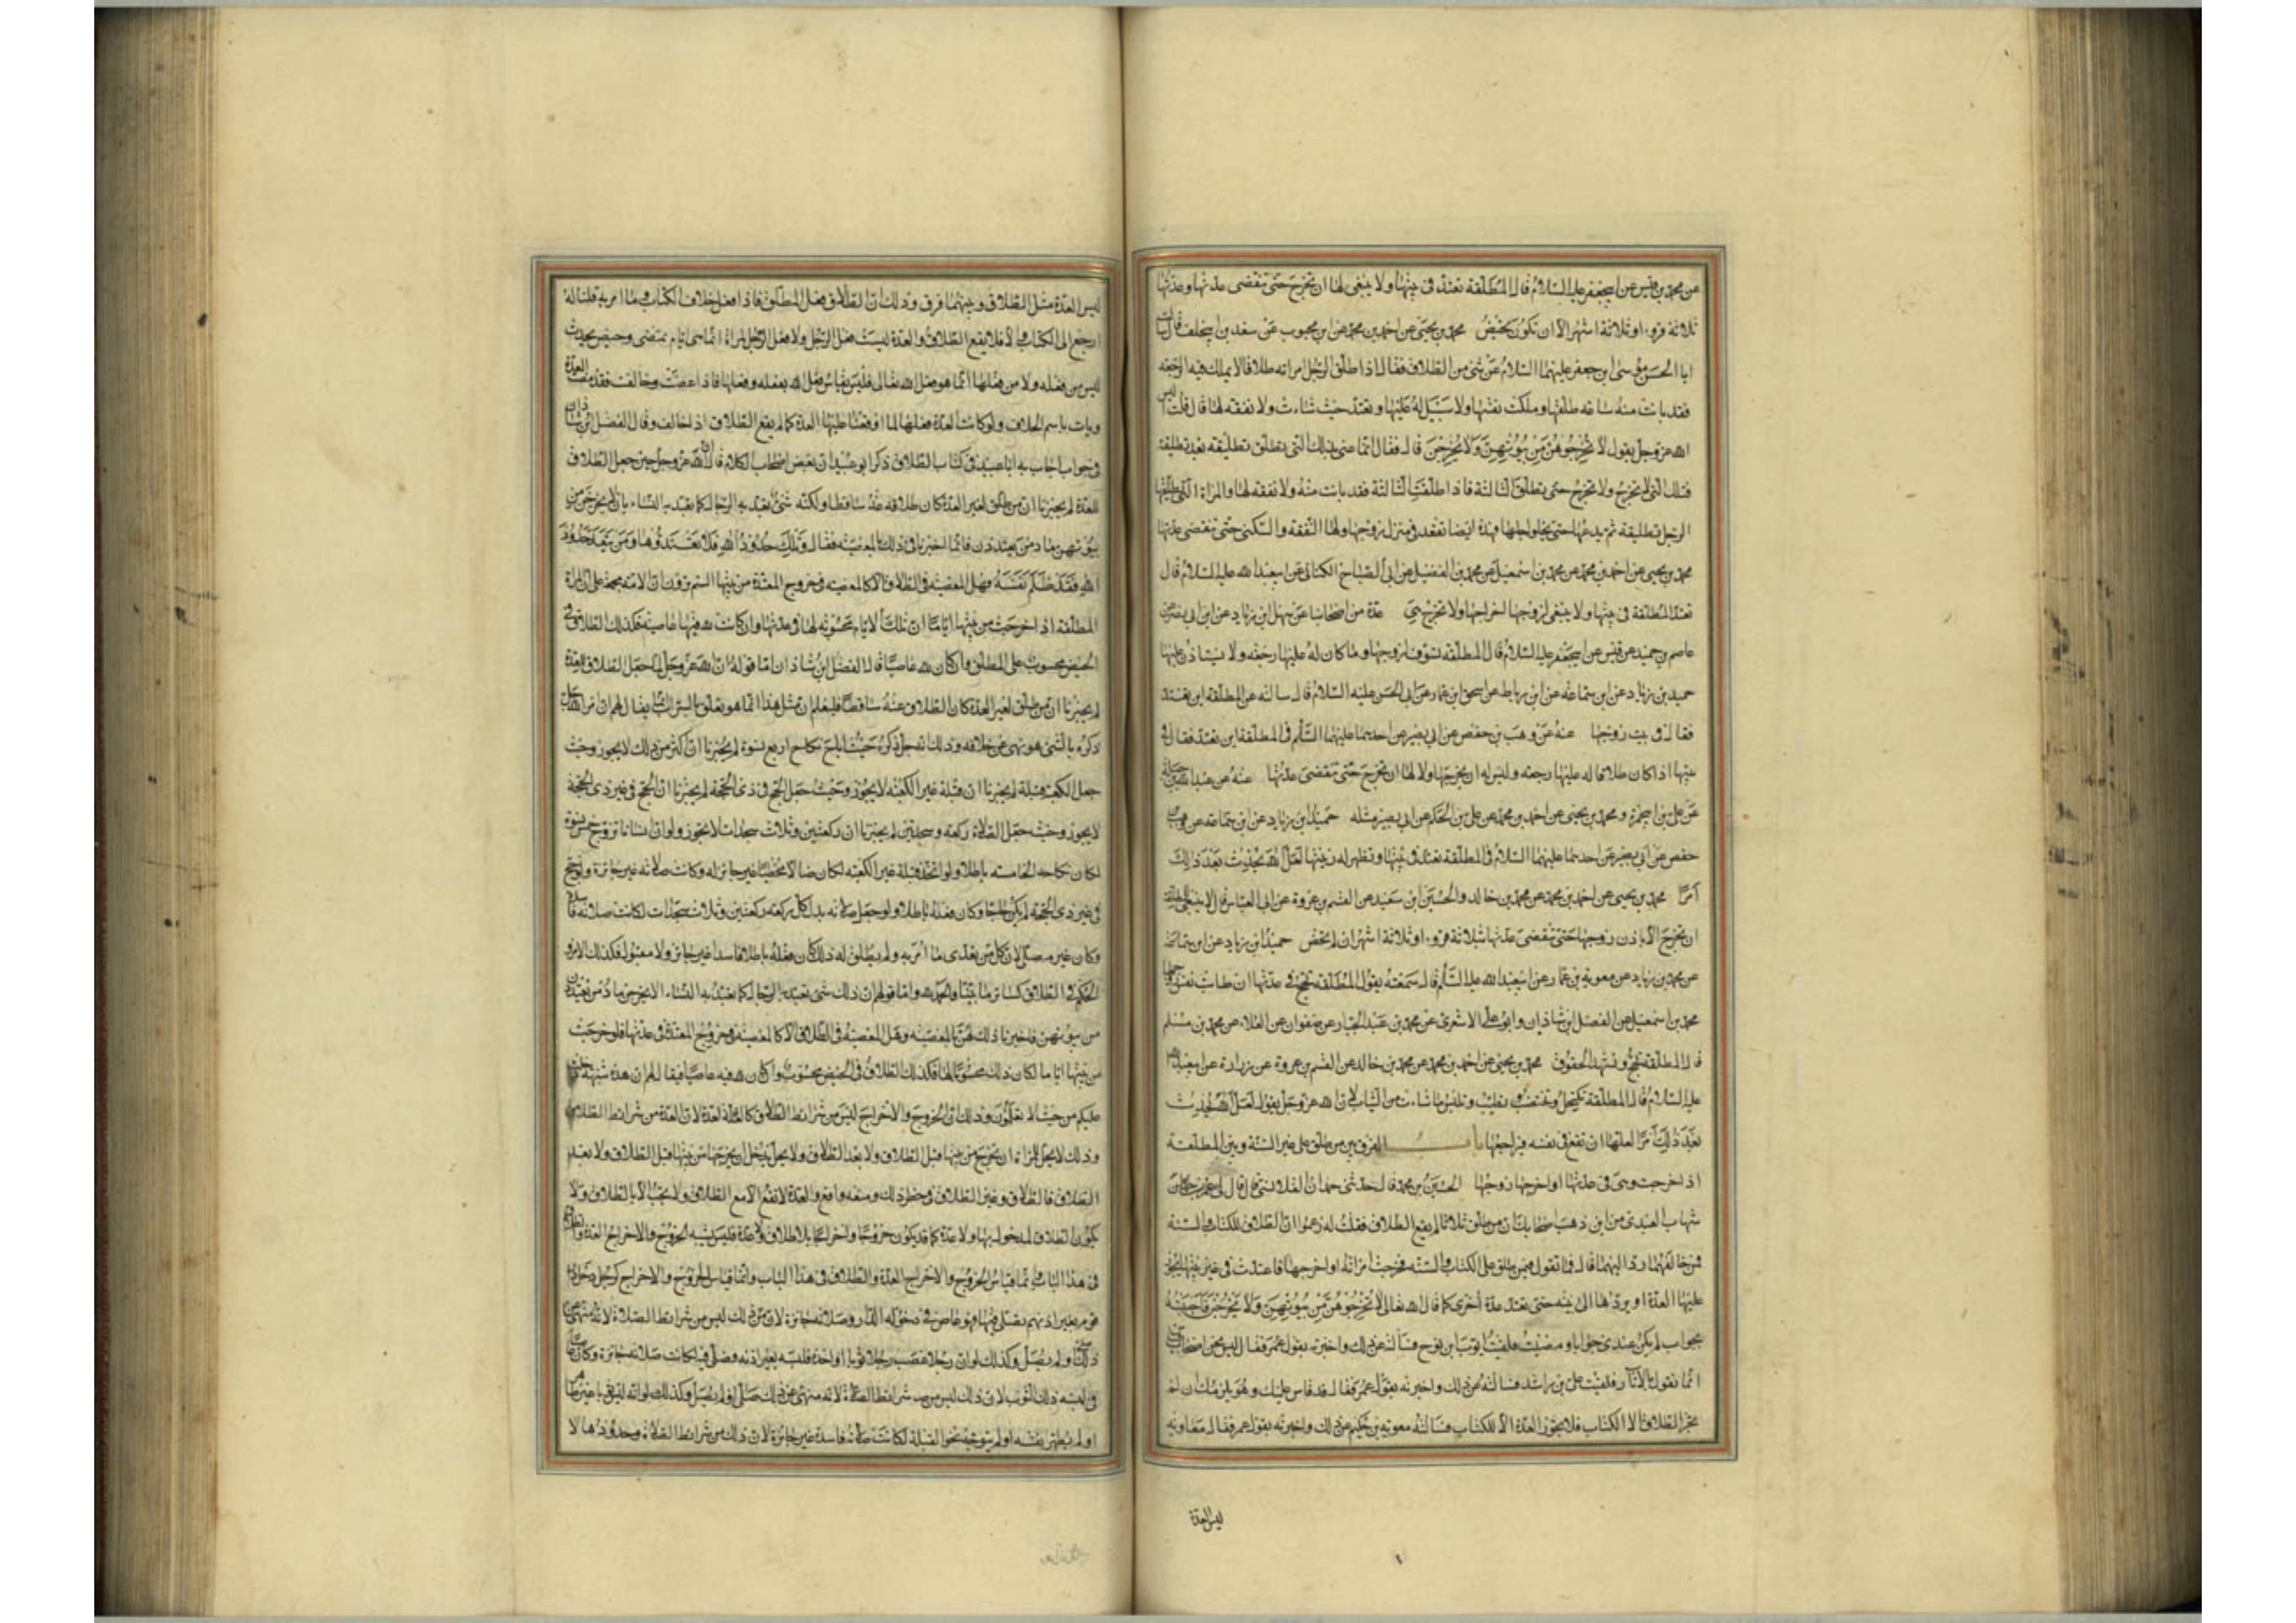 عن محمد بن قيس عن ابي جعفر عليه السلام قال المطلقة تعتد في بيتها ولا ينبغي لها ان تخرج حتى تنقضي عدتها وعدتها
ثلاثة قروء او ثلاثة اشهر الا ان تكون تحيض محمد بن يحيى عن احمد بن محمد عن ابن محبوب عن سعد بن ابي خلف قال سالت
ابا الحسن موسى ابن جعفر عليهما السلام عن شئ من الطلاق فقال اذا طلق الرجل امراته طلاقا لا يملك فيه الرجعة
فقد بانت منه ساعة طلقها وملكت نفسها ولا سبيل له عليها وتعتد حيث شاءت ولا نفقة لها قال قلت اليس
الله عز وجل يقول لا تُخرِجُوهُنَّ مِن بُيُوتِهِنَّ وَلَا يَخرُجنَ قال فقال انما عنى بذلك التي تطلق تطليقة بعد تطليقة
فتلك التي لا تخرج ولا تخرج حتى تطلق الثالثة فاذا طلقت الثالثة فقد بانت منه ولا نفقة لها والمراة التي يطلقها
الرجل تطليقة ثم يدعها حتى يخلو اجلها فهذه ايضا تقعد في منزل زوجها ولها النفقة والسكنى حتى تنقضي عدتها
محمد بن يحيى عن احمد بن محمد عن محمد بن اسمعيل عن محمد بن الفضيل عن ابي الصباح الكناني عن ابي عبد الله عليه السلام قال
تعتد المطلقة في بيتها ولا ينبغي لزوجها اخراجها ولا تخرج هي عدة من اصحابنا عن سهل ابن زياد عن ابن ابي نصر عن
عاصم بن حميد عن قيس عن ابي جعفر عليه السلام قال المطلقة تسوف لزوجها وما كان له عليها رجعة ولا يستاذن عليها
حميد بن زياد عن ابن سماعة عن ابن رباط عن اسحق ابن عمار عن ابي الحسن عليه السلام قال سالته عن المطلقة اين تعتد
فقال في بيت زوجها عنه عن وهب بن حفص عن ابي بصير عن احدهما عليهما السلام في المطلقة اين تعتد فقال في
بيتها اذا كان طلاقا له عليها رجعة وليس له ان يخرجها ولا لها ان تخرج حتى تنقضي عدتها عنه عن عبد الله بن جبلة
عن علي بن ابي حمزة و محمد بن يحيى عن احمد بن محمد عن علي بن الحكم عن ابي بصير مثله حميد ابن زياد عن ابن سماعة عن وهيب بن
حفص عن ابي بصير عن احدهما عليهما السلام في المطلقة تعتد في بيتها وتظهر له زينتها لعل الله يحدث بعد ذلك
امرا محمد بن يحيى عن احمد بن محمد عن محمد بن خالد والحسين ابن سعيد عن القسم بن عروة عن ابي العباس قال لا ينبغي للمطلقة
ان تخرج الا باذن زوجها حتى تنقضي عدتها ثلاثة قروء او ثلاثة اشهر ان لم تحض حميد ابن زياد عن ابن سماعة
عن محمد بن زياد عن معوية بن عمار عن ابي عبد الله عليه السلام قال سمعته يقول المطلقة تحج في عدتها ان طابت نفس زوجها
محمد بن اسمعيل عن الفضل ابن شاذان وابو علي الاشعري عن محمد بن عبد الجبار عن صفوان عن العلاء عن محمد بن مسلم
قال المطلقة تحج وتشهد الحقوق محمد بن يحيى عن احمد بن محمد عن محمد بن خالد عن القسم بن عروة عن زرارة عن ابي عبد الله
عليه السلام قال المطلقة تكتحل وتختضب وتطيب وتلبس ما شاءت من الثياب لان الله عز وجل يقول لعل الله يحدث
بعد ذلك امرا لعلها ان تقع في نفسه فيراجعها باب الفرق بين من طلق على غير السنة وبين المطلقة
اذا خرجت وهي في عدتها او اخرجها زوجها الحسين بن محمد قال حدثني حمدان القلانسي قال قال لي عمر بن
شهاب العبدي من اين ذهب اصحابك ان من طلق ثلاثا لم يقع الطلاق فقلت له زعموا ان الطلاق للكتاب والسنة
فمن خالفهما رد اليهما قال فما تقول فيمن طلق على الكتاب والسنة فخرجت امراته او اخرجها فاعتدت في غير بيتها تجوز
عليها العدة او يردها الى بيته حتى تعتد عدة اخرى كما قال الله تعالى لا تُخرِجُوهُنَّ مِن بُيُوتِهِنَّ وَلَا يَخرُجنَ فاجبته
بجواب لم يكن عندي جوابا ومضيت فلقيت ايوب ابن نوح فسالته عن ذلك واخبرته بقول عمر فقال ليس نحن اصحاب
انما نقول بالاثار فلقيت علي بن راشد فسالته عن ذلك واخبرته بقول عمر فقال قد قاس عليك وهو يلزمك ان لم
يجز الطلاق الا الكتاب فلا يجوز العدة الا للكتاب فسالت معوية بن حكيم عن ذلك واخبرته بقول عمر فقال معاوية
ليس العدة
ليس العدة مثل الطلاق وبينهما فرق وذلك ان الطلاق فعل المطلق فاذا فعل خلاف الكتاب وما امر به قلنا له
ارجع الى الكتاب والا فلا يقع الطلاق والعدة ليست فعل الرجل ولا فعل الرجل المراة انما هي ايام تمضي وحيض يحدث
ليس من فعله ولا من فعلها انما هو فعل الله تعالى فليس يقاس فعل الله بفعله وفعلها فاذا عصت وخالفت فقد مضت العدة
وبات باسم الخلاف ولو كانت العدة فعلها لما اوقعنا عليها العدة كما لم يقع الطلاق اذ اخالف وقال الفضل ابن شاذان
في جواب اجاب به ابا عبيد في كتاب الطلاق ذكر ابو عبيد ان بعض اصحاب الكلام قال ان الله عز وجل حين جعل الطلاق
للعدة لم يخبرنا ان من طلق لغير العدة كان طلاقه عنه ساقطا ولكنه شئ تعبد به الرجال كما تعبد به النساء بان لا يخرجن من
بيوتهن ما دمن يعتددن فانما اخبرنا في ذلك بالمعصية فقال وَتِلكَ حُدُودُ اللهِ فَلَا تَعتَدُوهَا وَمَن يَتَعَدَّ حُدُودَ
اللهِ فَقَد ظَلَمَ نَفسَهُ فهل المعصية في الطلاق الا كالمعصية في خروج المعتدة من بيتها الستم ترون ان الامة مجمعة على ان المراة
المطلقة اذا خرجت من بيتها اياما ان تلك الايام محسوبة لها في عدتها وان كانت لله فيها عاصية فكذلك الطلاق في
الحيض محسوب على المطلق وان كان لله عاصيا قال الفضل ابن شاذان اما قوله ان الله عز وجل لما جعل الطلاق للعدة
لم يخبرنا ان من طلق لغير العدة كان الطلاق عنه ساقطا فليعلم ان مثل هذا انما هو تعلق بالسراب انما يقال لهم ان امر الله جل
ذكره بالشئ هو نهى عن خلافه وذلك انه جل ذكره حيث اباح نكاح اربع نسوة لم يخبرنا ان اكثر من ذلك لا يجوز وحيث
جعل الكعبة قبلة لم يخبرنا ان قبلة غير الكعبة لا يجوز وحيث جعل الحج في ذي الحجة لم يخبرنا ان الحج في غير ذي الحجة
لا يجوز وحيث جعل الصلاة ركعة وسجدتين لم يخبرنا ان ركعتين وثلاث سجدات لا يجوز ولو ان انسانا تزوج خمس نسوة
لكان نكاحه الخامسة باطلا ولو اتخذ قبلة غير الكعبة لكان ضالا مخطئا غير جائز له وكانت صلاته غير جائزة ولو حج
في غير ذي الحجة لم يكن حاجا وكان فعله باطلا ولو جعل صلاته بدل كل ركعة ركعتين وثلاث سجدات لكانت صلاته فاسدة
وكان غير مصل لان كل من تعدى ما امر به ولم يطلق له ذلك كان فعله باطلا فاسدا غير جائز ولا مقبول فكذلك الامر و
الحكم في الطلاق كسائر ما بينا والحمد لله واما قولهم ان ذلك شئ تعبد به الرجال كما تعبد به النساء الا يخرجن ما دمن يعتددن
من بيوتهن فاخبرنا ذلك لهن بالمعصية وهل المعصية في الطلاق الا كالمعصية في خروج المعتدة في عدتها فلو خرجت
من بيتها اياما لكان ذلك محسوبا لها فكذلك الطلاق في الحيض محسوب وان كان لله فيه عاصيا فيقال لهم ان هذه شبهة دخلت
عليكم من حيث لا تعلمون وذلك ان الخروج والاخراج ليس من شرائط الطلاق كالعدة لان العدة من شرائط الطلاق
وذلك لا يحل للمراة ان تخرج من بيتها قبل الطلاق ولا بعد الطلاق ولا يحل للرجل ان يخرجها من بيتها قبل الطلاق ولا بعد
الطلاق فالطلاق وغير الطلاق في حظر ذلك ومنعه واحد والعدة لا تقع الا مع الطلاق ولا تجب الا بالطلاق ولا
يكون الطلاق لمدخول بها ولا عدة كما قد يكون خروجا واخراجا بلا طلاق ولا عدة فليس يشبه الخروج والاخراج العدة والطلاق
في هذا الباب وانما قياس الخروج والاخراج العدة والطلاق في هذا الباب وانما قياس الخروج والاخراج كرجل دخل دار
قوم بغير اذنهم فصلى فيها فهو عاص في دخوله الدار وصلاته جائزة لان ذلك ليس من شرائط الصلاة لانه منهي عن
ذلك صلى او لم يصل وكذلك لو ان رجلا غصب رجلا ثوبا او اخذه فلبسه بغير اذنه فصلى فيه لكانت صلاته جائزة وكان عاصيا
في لبسه ذلك الثوب لان ذلك ليس من شرائط الصلاة لانه منهي عن ذلك صلى او لم يصل وكذلك لو انه لبس ثوبا غير طاهر
او لم يطهر نفسه او لم يتوجه نحو القبلة لكانت صلاته فاسدة غير جائزة لان ذلك من شرائط الصلاة وحدودها لا